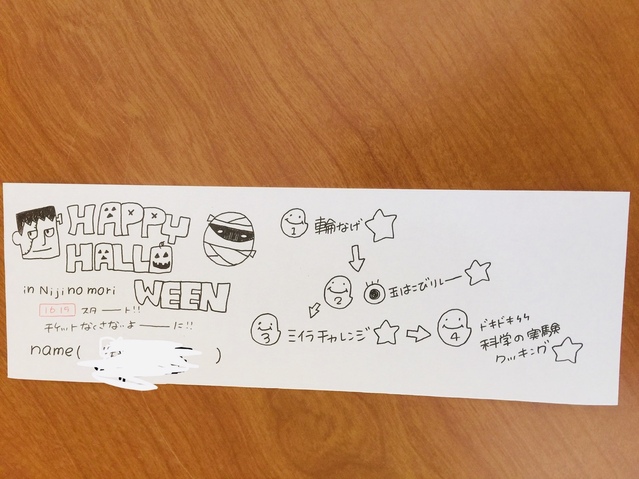 HAPPY
HALLO
WEEN
in Nijino mori
スタート!!
チケットなくさないよーに!!
name( )
1 輪なげ
2 玉はこびリレー
3 ミイラチャレンジ
4 ドキドキ
科学の実験
クッキング